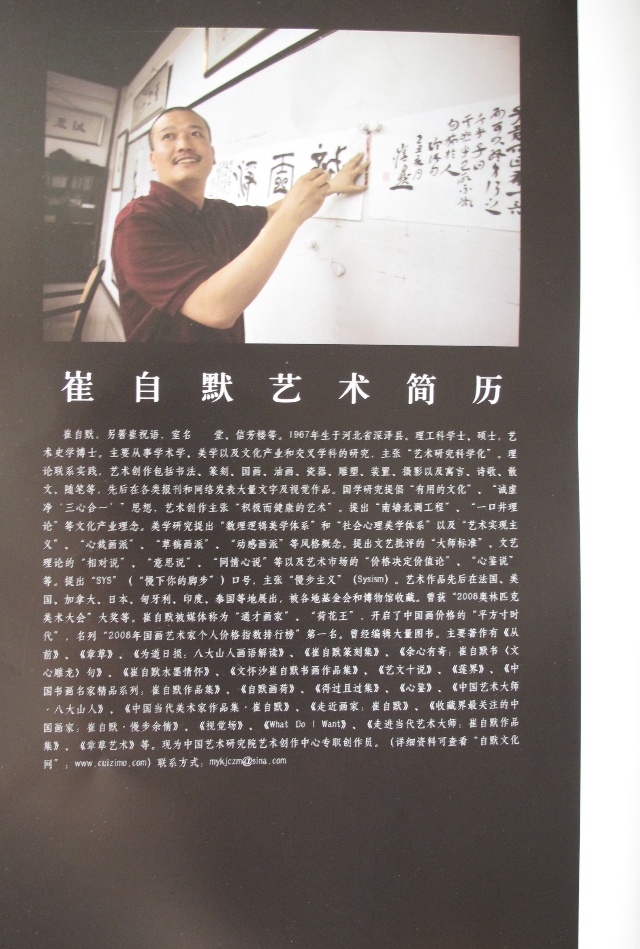 崔自默艺术简历
崔自默,另署崔祝语,室名 堂、信芳楼等。1967年生于河北省深泽县。理工科学士、硕士,艺
术史学博士。主要从事学术学、美学以及文化产业和交叉学科的研究,主张“艺术研究科学化”。理
论联系实践,艺术创作包括书法、篆刻、国画、油画、瓷器、雕塑、装置、摄影以及寓言、诗歌、散
文、随笔等。先后在各类报刊和网络发表大量文字及视觉作品。国学研究提倡“有用的文化”、“诚虚
净‘三心合一’”思想,艺术创作主张“积极而健康的艺术”。提出“南墙北调工程”、“一口井理
论”等文化产业理念。美学研究提出“数理逻辑美学体系”和“社会心理美学体系”以及“艺术实现主
义”、“心裁画派”、“草稿画派”、“动感画派”等风格概念。提出文艺批评的“大师标准”、文艺
理论的“相对说”、“意思说”、“同情心说”等以及艺术市场的“价格决定价值论”、“心鉴说”
等。提出“SYS”(“慢下你的脚步”)口号,主张“慢步主义”(Sysism)。艺术作品先后在法国、美
国、加拿大、日本、匈牙利、印度、泰国等地展出,被各地基金会和博物馆收藏。曾获“2008奥林匹克
美术大会”大奖等。崔自默被媒体称为“通才画家”、“荷花王”,开启了中国画价格的“平方寸时
代”,名列“2008年国画艺术家个人价格指数排行榜”第一名。曾经编辑大量图书。主要著作有《从
前》、《章草》、《为道日损:八大山人画语解读》、《崔自默篆刻集》、《余心有寄:崔自默书〈文
心雕龙〉句》、《崔自默水墨情怀》、《文怀沙崔自默书画作品集》、《艺文十说》、《莲界》、《中
国书画名家精品系列:崔自默作品集》、《自默画荷》、《得过且过集》、《心鉴》、《中国艺术大师
·八大山人》、《中国当代美术家作品集·崔自默》、《走近画家:崔自默》、《收藏界最关注的中
国画家:崔自默·慢步余情》、《视觉场》、《What Do I Want》、《走进当代艺术大师:崔自默作品
集》、《章草艺术》等。现为中国艺术研究院艺术创作中心专职创作员。(详细资料可查看“自默文化
网”:www.cuizimo.com)联系方式:mykjczm@sina.com